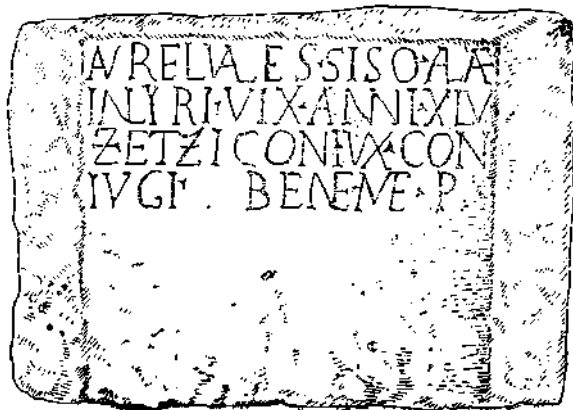 AVRELIA ES·SISO·AA
INLYRI·VIX·ANNI·XLV
ZETZI CONIVX·CON
IVGI · BENE·ME·P